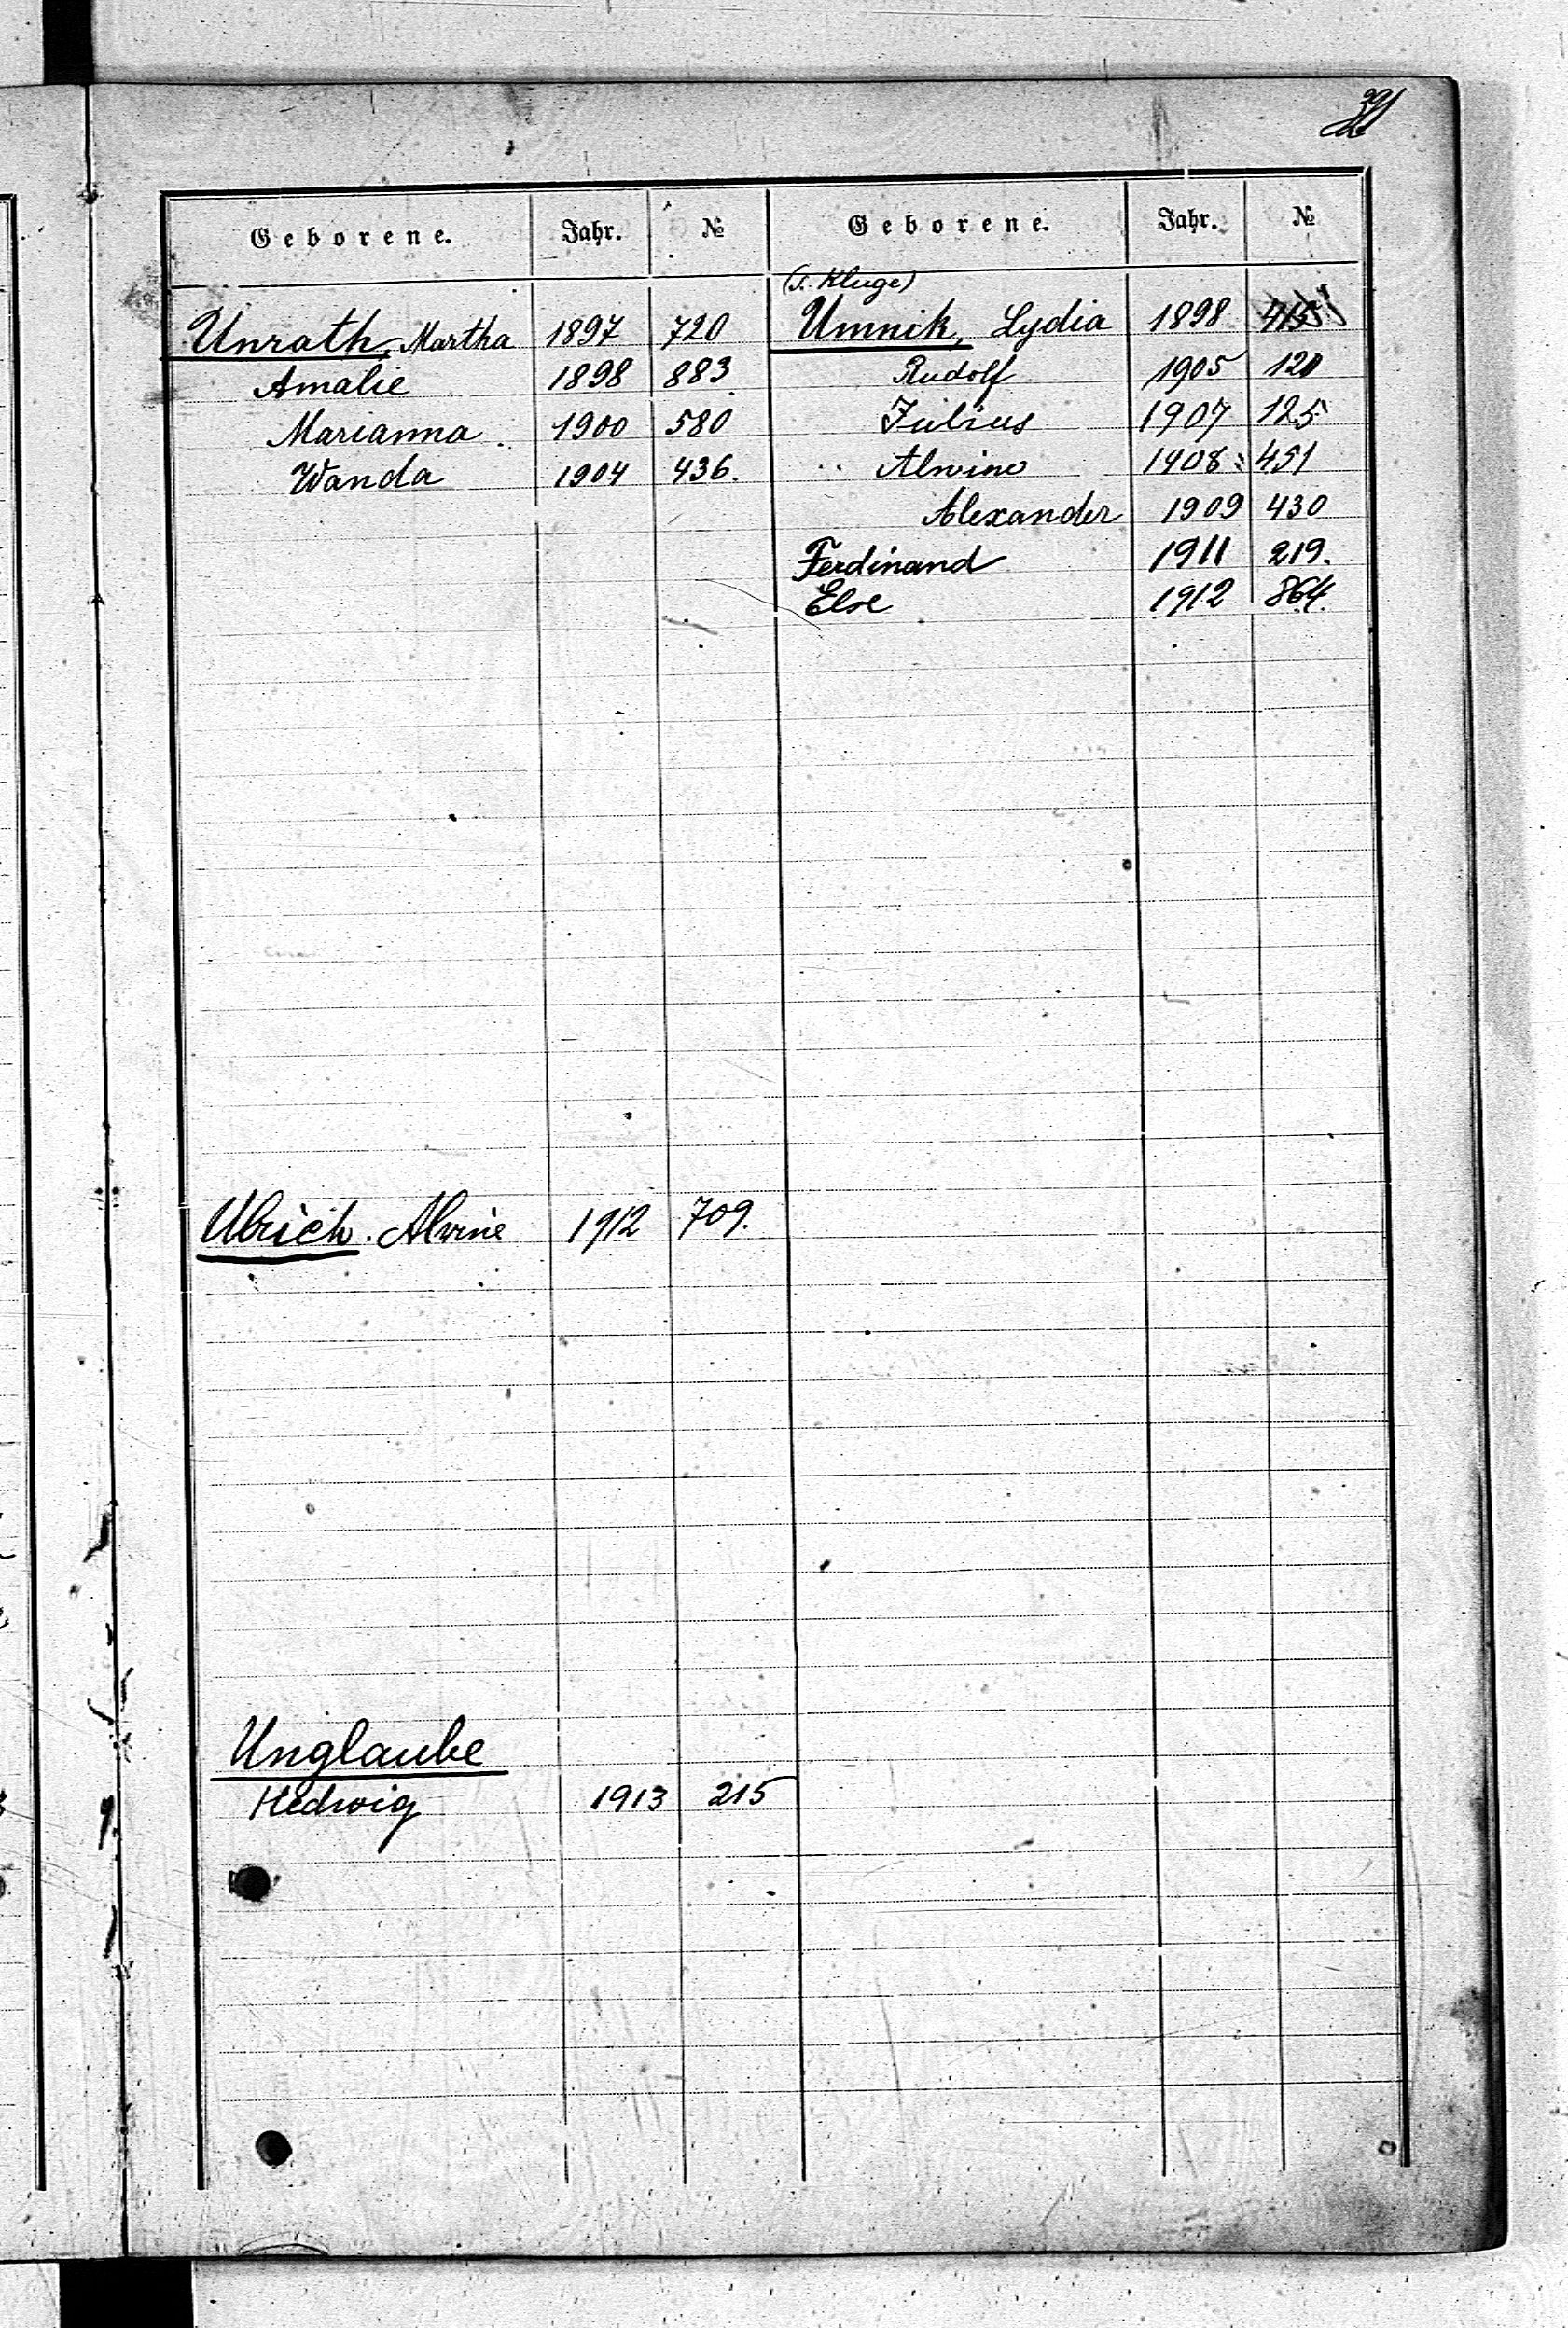 Geborene. Jahr. №
Unrath, Martha 1897 720
Amalie 1898 883
Marianna. 1900 580
Wanda 1904 436.
Ulrich. Alvine 1912 709.
Unglaube
Hedwig 1913 215
Geborene. Jahr. №
(s. Kluge)
Umnik, Lydia 1898
Rudolf 1905 120
Julius 1907 125
Alwine 1908 451
Alexander 1909 430
Ferdinand 1911 219.
Else 1912 864.